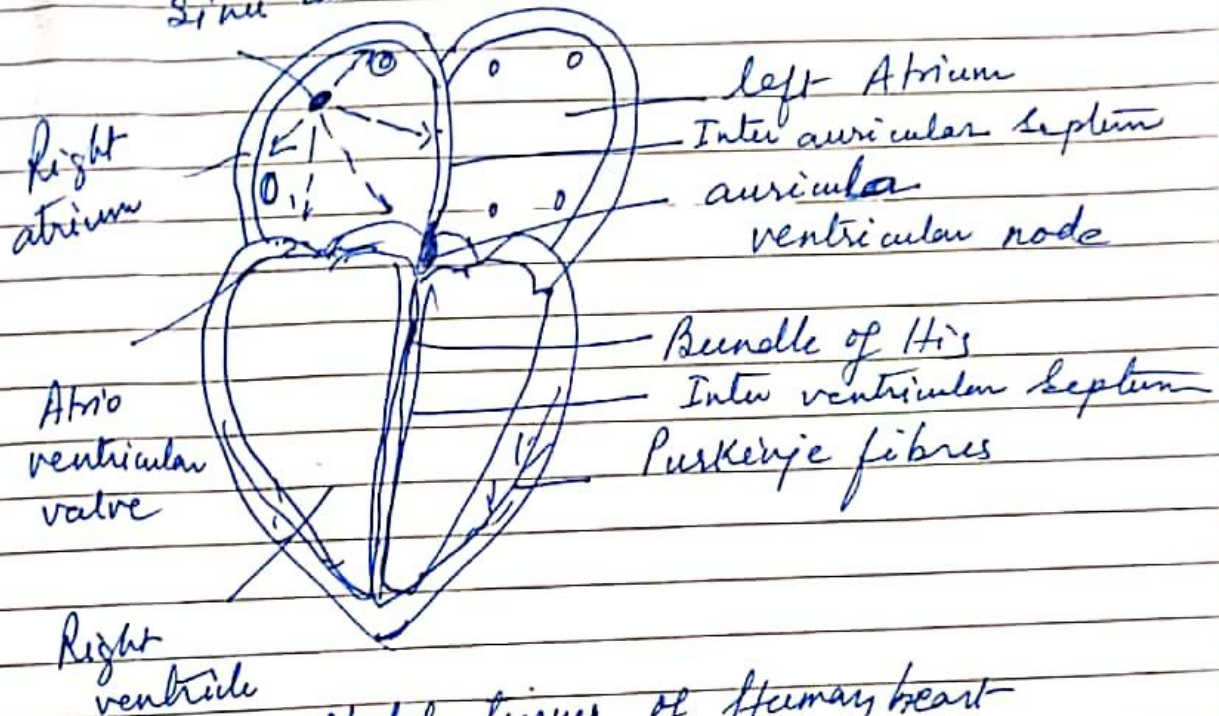 Sinu
left Atrium
Inter auricular Septum
auricula
ventricular node
Right
atrium
Bundle of His
Inter ventricular Septum
Purkinje fibres
Atrio
ventricular
valve
Right
ventricle
of Human heart